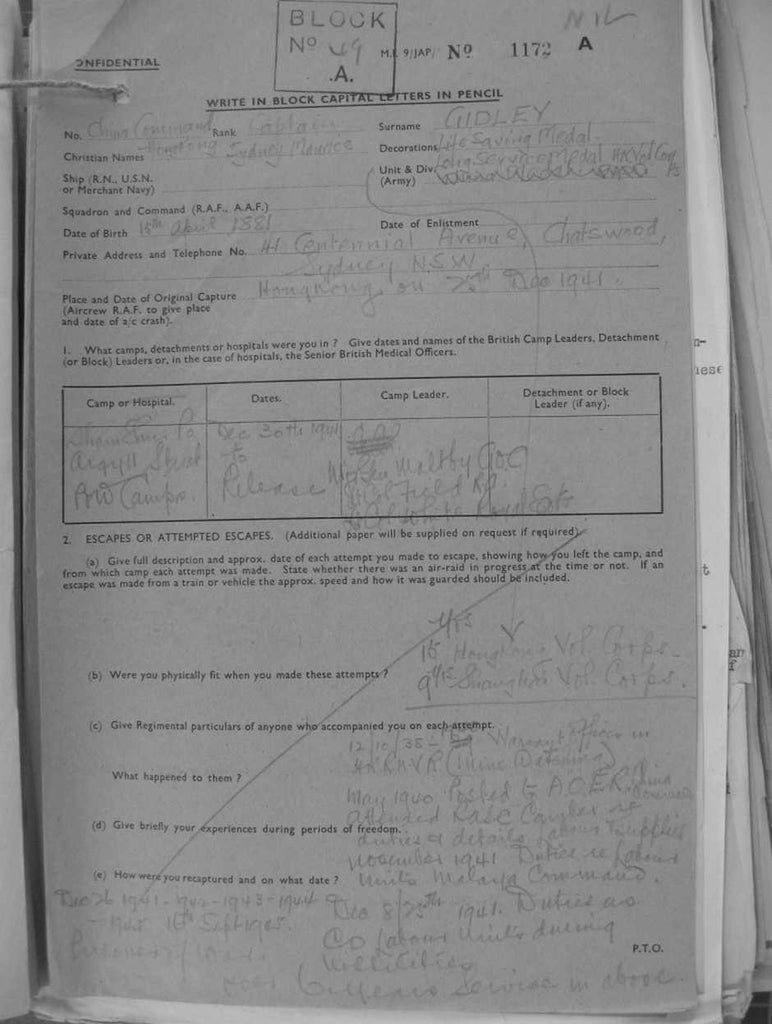 BLOCK
No 49
.A.
NIL
M.I. 9/JAP/ No 1172 A
ONFIDENTIAL
WRITE IN BLOCK CAPITAL LETTERS IN PENCIL
No. China Command Rank Captain Surname GIDLEY
Hongkong
Christian Names Sydney Maurice Decorations Life Saving Medal
Ship (R.N., U.S.N. or Merchant Navy)
Unit & Div. (Army) Service Medal HK Vol
Squadron and Command (R.A.F., A.A.F.)
Date of Birth 15th April 1881 Date of Enlistment
Private Address and Telephone No. 41 Centennial Avenue, Chatswood,
Sydney N.S.W.
Place and Date of Original Capture HongKong on 25th Dec 1941.
(Aircrew R.A.F. to give place
and date of a/c crash).
1. What camps, detachments or hospitals were you in ? Give dates and names of the British Camp Leaders, Detachment
(or Block) Leaders or, in the case of hospitals, the Senior British Medical Officers.
Camp or Hospital. Dates. Camp Leader. Detachment or Block
Leader (if any).
Dec 30th 1941
Argyll Street to Maltby GOC
POW Camps. Release Lt Col Field RA
Lt Col White Royal Scots
2. ESCAPES OR ATTEMPTED ESCAPES. (Additional paper will be supplied on request if required).
(a) Give full description and approx. date of each attempt you made to escape, showing how you left the camp, and
from which camp each attempt was made. State whether there was an air-raid in progress at the time or not. If an
escape was made from a train or vehicle the approx. speed and how it was guarded should be included.
yrs
15 HongKong Vol. Corps.
(b) Were you physically fit when you made these attempts ?
9 yrs Shanghai Vol. Corps.
(c) Give Regimental particulars of anyone who accompanied you on each attempt.
12/10/38 - Warrant Officer in
HKRNVR (Mine Watching)
What happened to them ?
May 1940 Posted to A.O.E.R. China Command
attended RASC re
(d) Give briefly your experiences during periods of freedom.
duties & details Labour & supplies
November 1941 Duties re Labour
(e) How were you recaptured and on what date ? Units Malaya Command.
Dec 26 1941-1942-1943-1944
- 1945 16th Sept 1945.
Dec 8/25th 1941. Duties as
CO Labour Units during
Prisoner of War.
P.T.O.
Hostilities
service in above